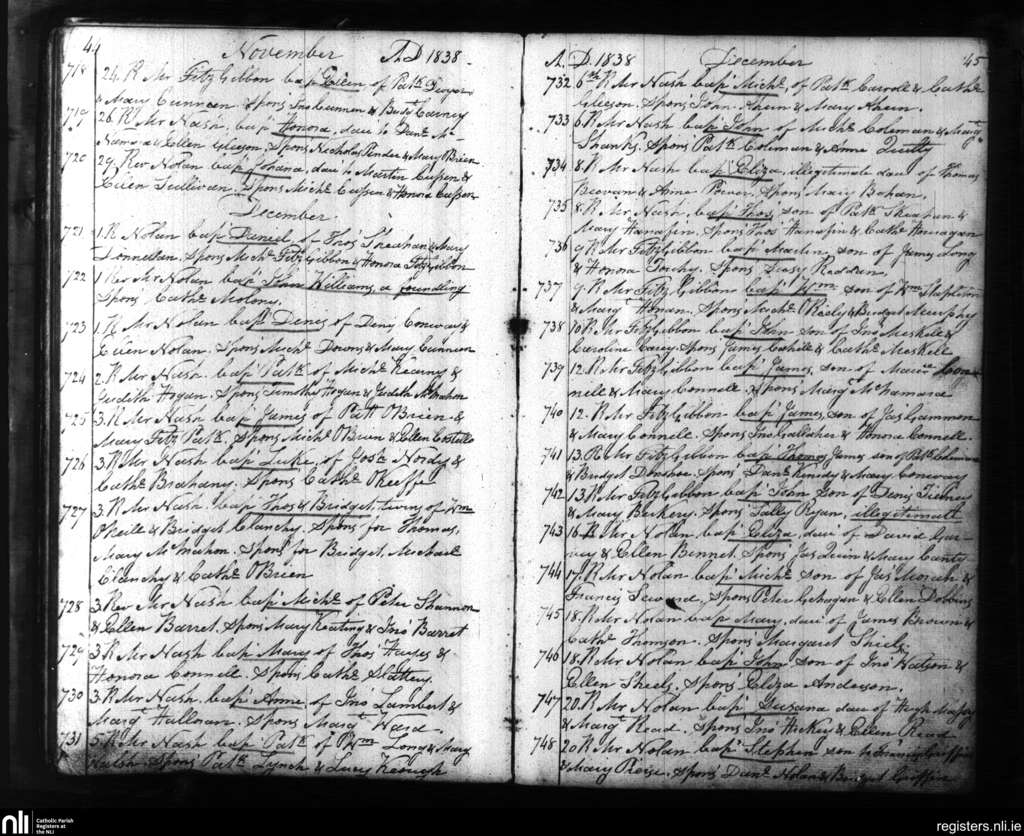 44
November A.D 1838
718 24. R Mr FitzGibbon bapd Ellen of Patk Dwyer
& Mary Cunneen Spons Jno Cunneen & Bridt Carney
719 26. Rd Mr Nash. bapd Honora, daur to Danl Mc
Namara & Ellen Gleeson. Spons Nicholas Pender & Mary OBrien
720 29. Revd Nolan bapd Johana, daur to Martin Cussen &
Ellen Sullivan. Spons Michl Cussen & Honora Cussen
December.
721 1. R Nolan bapd Daniel of Thos Sheehan & Mary
Donnellan. Spons Michl FitzGibbon & Honora FitzGibbon
722 1 Rev Mr Nolan bapd John Williams, a foundling
Spons Cathe Molony.
723 1. R Mr Nolan bapd Denis of Deny Conway &
Ellen Nolan. Spons Michl Downs & Mary Cunneen
724 2. R Mr Nash bapd Patk of Michl Kearny &
Judith Hogan. Spons Timothy Hogan & Judith McMahon
725 3. R Mr Nash bapd James of Patt OBrien &
Mary Fitz Patk. Spons Michl OBrien & Ellen Costello
726 3. R Mr Nash bapd Luke, of Josh Nordy &
Cathe Brahany. Spons Cathe OKeeffe
727 3. R Mr Nash bapd Thos & Bridget, twins of Wm
OKeille & Bridget Clanchy. Spons for Thomas,
Mary McMahon. Spons for Bridget, Michael
Clanchy & Cathe OBrien
728 3. Rev Mr Nash bapd Michl of Peter Shannon
& Ellen Barret. Spons Mary Keating & Jno Barret
729 3. R Mr Nash bapd Mary of Thos Hayes &
Honora Connell. Spons Cathe Slattery.
730 3. R Mr Nash. bapd Anne of Jno Lambert &
Margt Hallinan. Spons Margt Ward.
731 5. R Mr Nash bapd Patk of Wm Long & Mary
Walsh. Spons Patk Lynch & Lucy Keough
A. D. 1838 December 45
732 6th R Mr Nash bapd Michl of Patk Carroll & Cathe
Gleeson. Spons John Ahern & Mary Ahern.
733 6. R Mr Nash bapd John of Michl Coleman & Margt
Shanks. Spons Patk Coleman & Anne Quilty
734 8. R Mr Nash bapd Eliza, illegitimate daur of Thomas
Beovan & Anne Power. Spons Mary Bahan,
735 8. R Mr Nash, bapd Thos son of Patk Sheahan &
Mary Hanafin. Spons Thos Hanafin & Cathe Hannagan
736 9. R Mr FitzGibbon bapd Martin, son of James Long
& Honora Torehy. Spons Susy Raddan,
737 9. R Mr FitzGibbon bapd Wm son of Wm Stapleton
& Margt Honan. Spons Michl OReily & Bridget Murphy
738 10 R Mr FitzGibbon bapd John son of Jno Meskell &
Caroline Carey Spons James Cahill & Cathe Meskell
739 12. R Mr FitzGibbon bapd James, son of Maur Con-
nell & Mary Connell. Spons Margt McNamara
740 12. R Mr FitzGibbon bapd James, son of Jas Grammon
& Mary Connell. Spons Jno Gallaher & Honora Connell.
741 13. R Mr FitzGibbon bapd Thomas James son of Patk Coleman
& Bridget Donohoe. Spons Danl Kennedy & Mary Conway
742 13. R Mr FitzGibbon bapd John son of Denis Tierney
& Mary Berkery. Spons Sally Ryan, illegitimate
743 16. R Mr Nolan bapd Eliza, daur of David Gar-
vey & Ellen Bennet. Spons Jas Quin & Mary Canty
744 17. R Mr Nolan bapd Michl son of Jas Morah &
Francis Seward, Spons Peter Gehagan & Ellen Dobbins
745 18. R Mr Nolan bapd Mary, daur of James Brown &
Cathe Thomson. Spons Margaret Shiels.
746 18. R Mr Nolan bapd John son of Jno Watson &
Ellen Sheels. Spons Eliza Anderson.
747 20. R Mr Nolan bapd Susana daur of Hugh
& Margt Read. Spons Jno Hickey & Ellen Read
748 20 R Mr Nolan bapd Stephen son to Francis Griffin
& Mary Pierse. Spons Danl Nolan & Bridget Griffin
nli Catholic Parish
Registers at
the NLI
registers.nli.ie